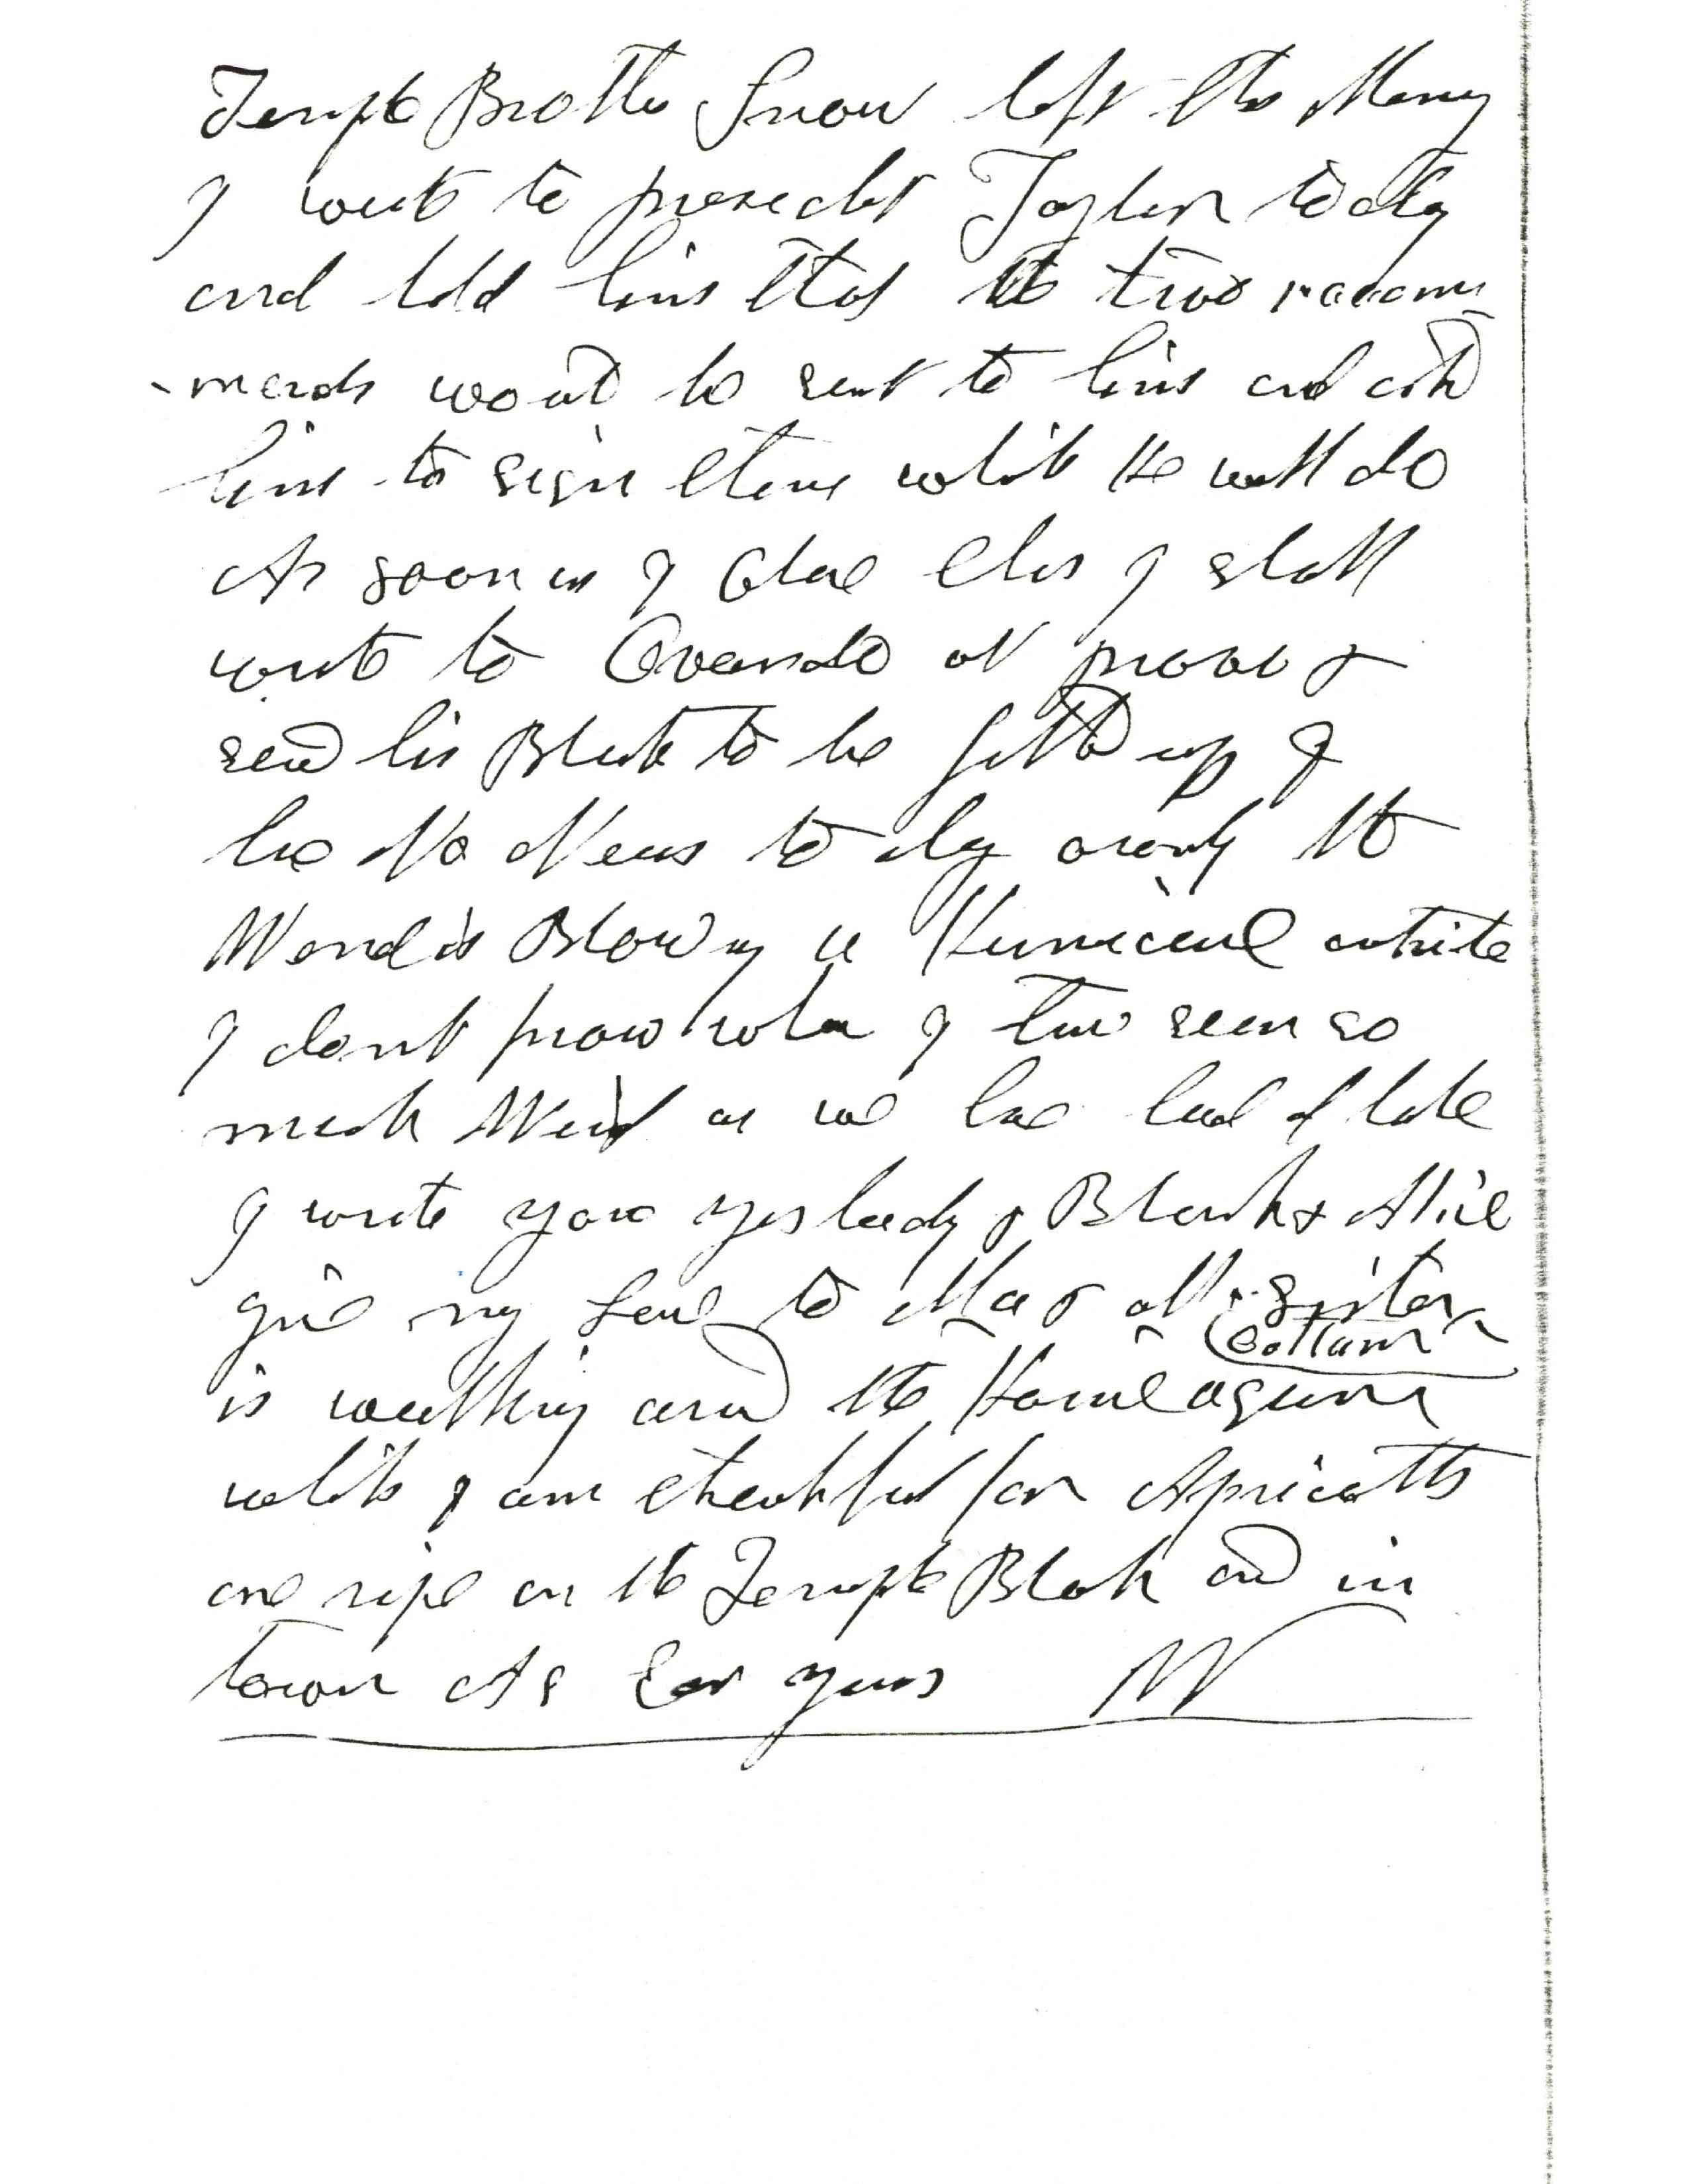 Temple Brother Snow left this Morng
I wrote to president Taylor to day
and told him that the two recom
-mends would be sent to him and askd
him to sign them which He will do
As soon as I obtane this I shall
write to Ovando at provo &
send his Blank to be fitted up I
have No News to day ownly the
Wend is Blowing a Hurricane outside
I dont know when I have seen so
much Wend as we have had of late
I wrote you yesterday & Blanch & Alice
give my Love to Ma & all Sister
Cottam
is walking arou[n]d the House again
which I am thankful for Apricotts
are ripe on the Temple Block and in
town As Ever yours W